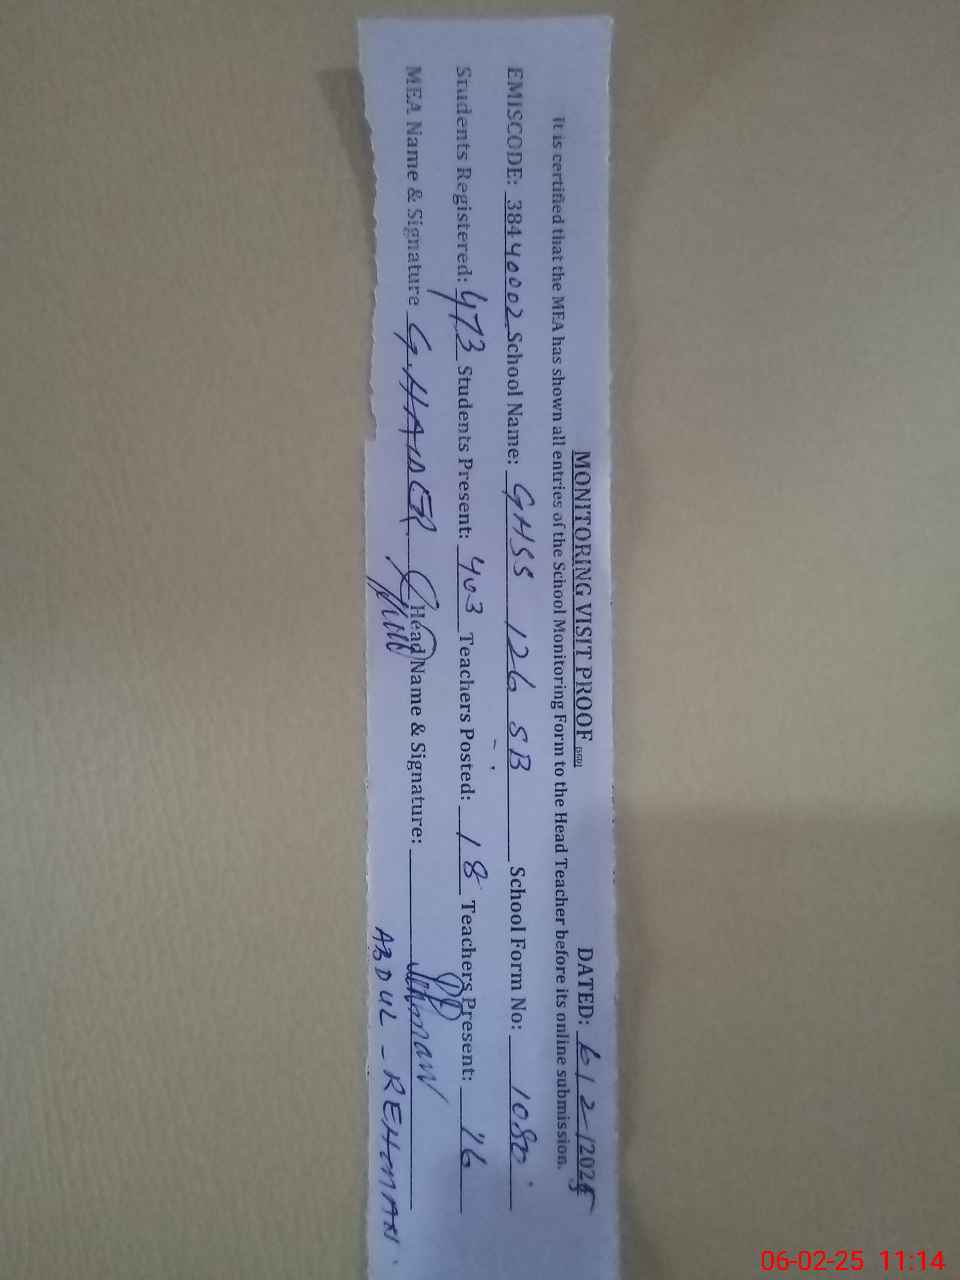 MONITORING VISIT PROOF DATED: 6/2/2025
It is certified that the MEA has shown all entries of the School Monitoring Form to the Head Teacher before its online submission.
EMISCODE: 38440002 School Name: GHSS 126 SB School Form No: 1080
Students Registered: 473 Students Present: 403 Teachers Posted: 18 Teachers Present: 16
MEA Name & Signature G.HAIDER Head Name & Signature:
ABDUL-REHMAN
06-02-25 11:14